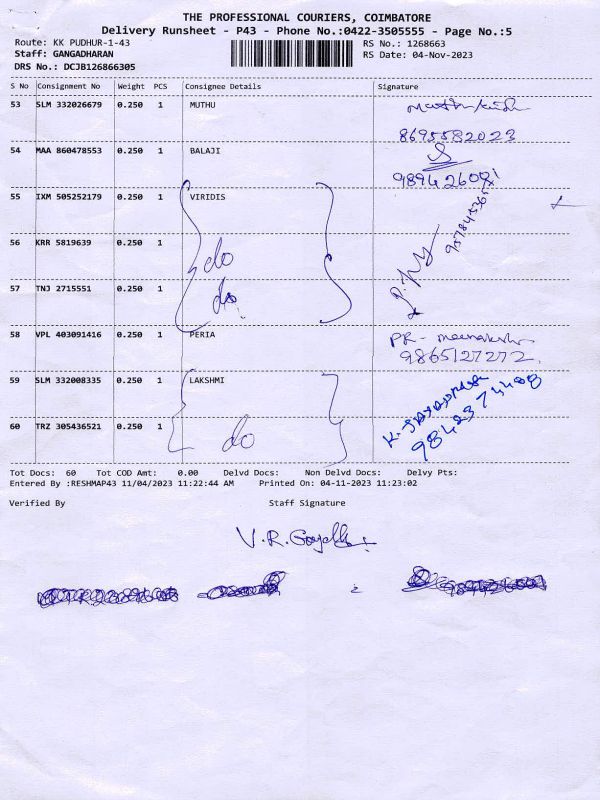 THE PROFESSIONAL COURIERS, COIMBATORE
Delivery Runsheet - P43 - Phone No.:0422-3505555 - Page No.:5
Route: KK PUDHUR-1-43 RS No.: 1268663
Staff: GANGADHARAN RS Date: 04-Nov-2023
DRS No.: DCJB126866305
S No Consignment No Weight PCS Consignee Details Signature
53 SLM 332026679 0.250 1 MUTHU
8695582023
54 MAA 860478553 0.250 1 BALAJI
55 IXM 505252179 0.250 1 VIRIDIS
56 KRR 5819639 0.250 1 do
57 TNJ 2715551 0.250 1 do
58 VPL 403091416 0.250 1 PERIA PR - meenakshi
9865127272
59 SLM 332008335 0.250 1 LAKSHMI
9842374408
60 TRZ 305436521 0.250 1 do
Tot Docs: 60 Tot COD Amt: 0.00 Delvd Docs: Non Delvd Docs: Delvy Pts:
Entered By :RESHMAP43 11/04/2023 11:22:44 AM Printed On: 04-11-2023 11:23:02
Verified By Staff Signature